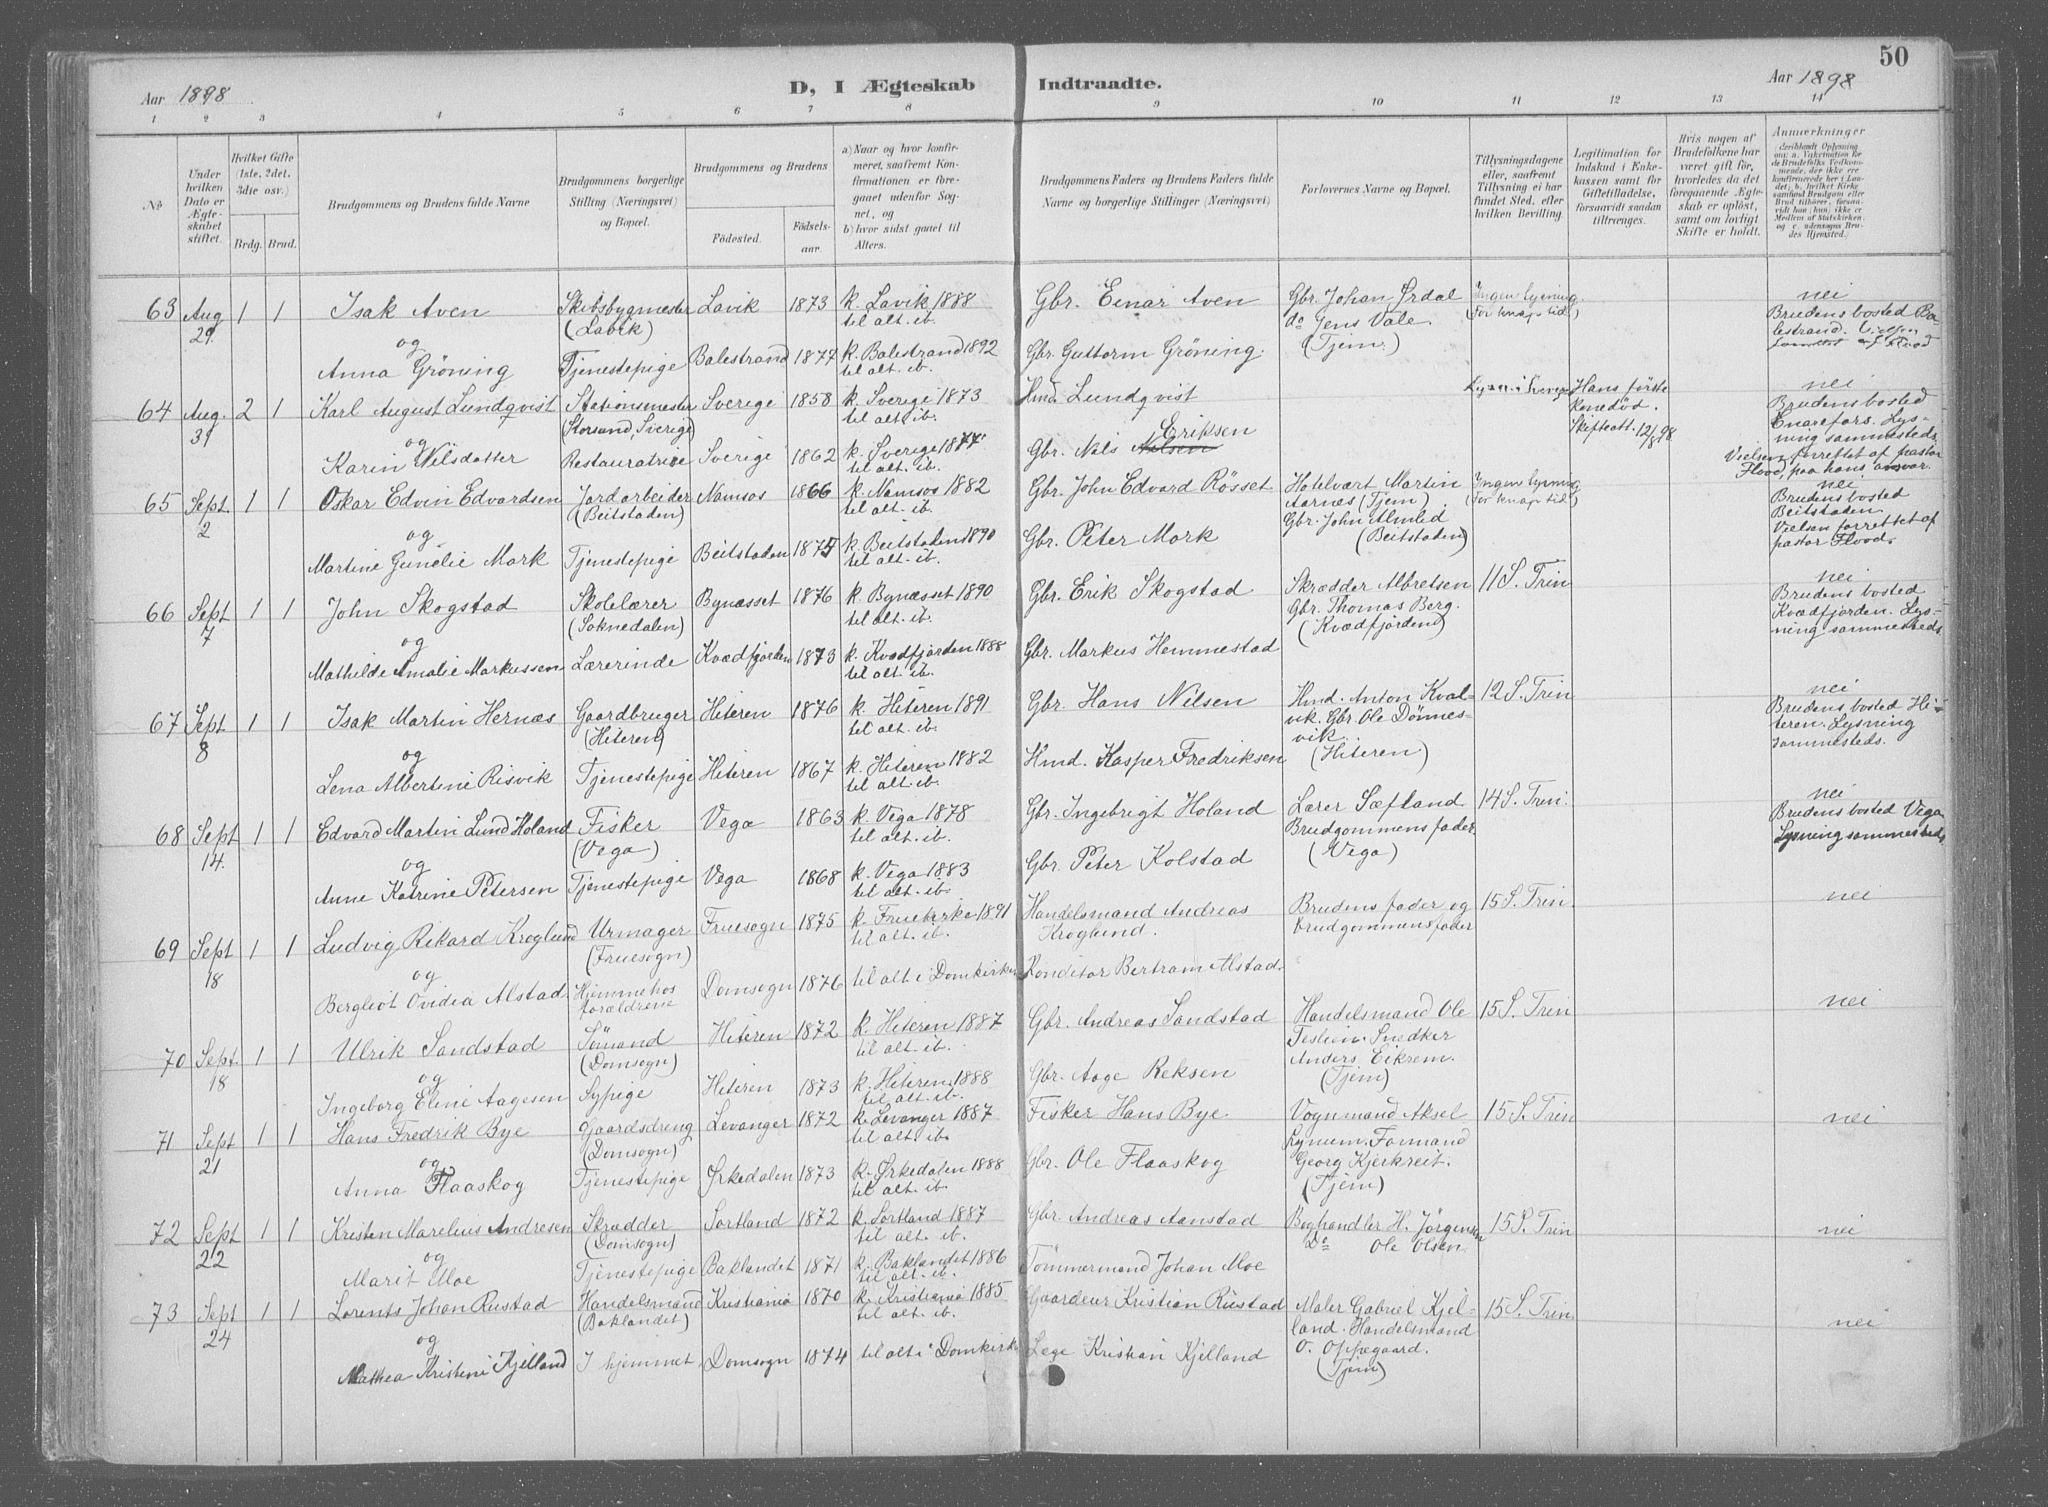 50
Aar 1898
D, I Ægteskab Indtraadte.
Aar 1898
1 2 3 4 5 6 7 8 9 10 11 12 13 14
No
Under hvilken Dato er Ægteskabet stiftet.
Hvilket Gifte (1ste, 2det, 3die osv.)
Brdg. Brud.
Brudgommens og Brudens fulde Navne
Brudgommens borgerlige Stilling (Næringsvei) og Bopæl.
Brudgommens og Brudens
Fødested. Fødselsaar.
a) Naar og hvor konfirmeret, saafremt Konfirmationen er foregaaet udenfor Sognet, og
b) hvor sidst gaaet til Alters.
Brudgommens Faders og Brudens Faders fulde Navne og borgerlige Stillinger (Næringsvei)
Forlovernes Navne og Bopæl.
Tillysningsdagene eller, saafremt Tillysning ei har fundet Sted, efter hvilken Bevilling.
Legitimation for Indskud i Enkekassen samt for Giftetilladelse, forsaavidt saadan tiltrænges.
Hvis nogen af Brudefolkene har været gift før, hvorledes da det foregaaende Ægteskab er opløst, samt om lovligt Skifte er holdt.
Anmærkninger
(deriblandt Oplysning om: a. Vakcination for de Brudefolks Vedkommende, der ikke ere konfirmerede her i Landet; b. hvilket Kirkesamfund Brudgom eller Brud tilhører, forsaavidt han (hun) ikke er Medlem af Statskirken, og c. udensogns Brudes Hjemsted.)
63 Aug 29 1 1 Isak Aven Skibsbygmester (Lavik) Lavik 1873 k. Lavik 1888 til alt. ib. Gbr. Einar Aven Gbr. Johan Ørdal do Jens Vale. (Tjem.) Ingen lysning. (For knap tid) nei
og
Anna Gröning Tjenestepige Balestrand 1877 k. Balestrand 1892 til alt. ib. Gbr. Guttorm Gröning. Brudens bosted Balestrand.
64 Aug. 31 2 1 Karl August Lundqvist Stationsmester (Korsund, Sverige) Sverige 1858 k. Sverige 1873 til alt. ib. Hmd. Lundqvist Hans første kone død. Skifteatt. 12/8 98 nei
og
Karin Nilsdatter Restauratrice Sverige 1862 k. Sverige 1877 til alt. ib. Gbr. Nils Nilsen Eriksen Brudens bosted Enarefors. Lysning sammesteds. Vielsen forrettet af pastor Flood, paa hans ansvar.
65 Sept. 2 1 1 Oskar Edvin Edvardsen Jordarbeider (Beitstaden) Namsos 1866 k. Namsos 1882 til alt. ib. Gbr. John Edvard Rösset Hotelvært Martin Aarnes (Tjem). Gbr. John Almlid (Beitstaden) Ingen lysning (For knap tid) nei
og
Martine Gunelie Mork Tjenestepige Beitstaden 1875 k. Beitstaden 1890 til alt. ib. Gbr. Peter Mork Brudens bosted Beitstaden Vielsen forrettet af pastor Flood.
66 Sept 7 1 1 John Skogstad Skolelærer (Soknedalen) Bynæsset 1876 k. Bynæsset 1890 til alt. ib. Gbr. Erik Skogstad Skrædder Albretsen Gbr. Thomas Berg. (Kvædfjorden) 11 S. Trin nei
og
Mathilde Amalie Markussen Lærerinde Kvædfjorden 1873 k. Kvædfjorden 1888 til alt. ib. Gbr. Markus Hemmestad Brudens bosted Kvædfjorden. Lysning sammesteds
67 Sept 8 1 1 Isak Martin Hernæs Gaardbruger (Hiteren) Hiteren 1876 k. Hiteren 1891 til alt. ib. Gbr. Hans Nilsen Hmd. Anton Kvalvik. Gbr. Ole Dönnesvik. (Hiteren) 12 S. Trin nei
og
Lena Albertine Risvik Tjenestepige Hiteren 1867 k. Hiteren 1882 til alt. ib. Hmd. Kasper Fredriksen Brudens bosted Hiteren. Lysning sammesteds.
68 Sept 14. 1 1 Edvard Martin Lund Holand Fisker (Vega) Vega 1863 k. Vega 1878 til alt. ib. Gbr. Ingebrigt Holand Lærer Sæfland Brudgommens fader (Vega) 14 S. Trin. nei
og
Anne Katrine Petersen Tjenestepige Vega 1868 k. Vega 1883 til alt. ib. Gbr. Peter Kolstad Brudens bosted Vega Lysning sammesteds
69 Sept 18 1 1 Ludvig Rikard Kroglund Urmager (Fruesogn) Fruesogn 1875 k. Fruekirke 1891 til alt. ib. Handelsmand Andreas Kroglund. Brudens fader og brudgommens fader 15 S. Trin nei
og
Bergliot Ovidia Alstad Hjemme hos forældrene Domsogn 1876 til alt i Domkirken Konditor Bertram Alstad.
70 Sept. 18 1 1 Ulrik Sandstad Sömand (Domsogn) Hiteren 1872 k. Hiteren 1887 til alt. ib. Gbr. Andreas Sandstad Handelsmand Ole Teslien. Snedker Anders Eikrem. (Tjem) 15 S. Trin nei
og
Ingeborg Eline Aagesen Sypige Hiteren 1873 k. Hiteren 1888 til alt. ib. Gbr. Aage Reksen
71 Sept 21 1 1 Hans Fredrik Bye Gaardsdreng (Domsogn) Levanger 1872 k. Levanger 1887 til alt. ib. Fisker Hans Bye. Vognmand Aksel Lynum. Formand Georg Kjerkreit. (Tjem) 15 S. Trin nei
og
Anna Flaaskog Tjenestepige Ørkedalen 1873 k. Ørkedalen 1888 til alt. ib. Gbr. Ole Flaaskog
72 Sept 22 1 1 Kristen Marelius Andresen Skrædder (Domsogn) Sortland 1872 k. Sortland 1887 til alt. ib. Gbr. Andreas Aanstad Boghandler H. Jörgensen Do Ole Olsen 15 S. Trin nei
og
Marit Moe Tjenestepige Baklandet 1871 k. Baklandet 1886 til alt. ib. Tömmermand Johan Moe
73 Sept 24 1 1 Lorents Johan Rustad Handelsmand (Baklandet) Kristiania 1870 k. Kristiania 1885 til alt. ib. Gaardeier Kristian Rustad Maler Gabriel Kjelland. Handelsmand O. Oppegaard. (Tjem) 15 S. Trin nei
og
Mathea Kristine Kjelland I hjemmet Domsogn 1874 til alt i Domkirken Læge Kristian Kjelland